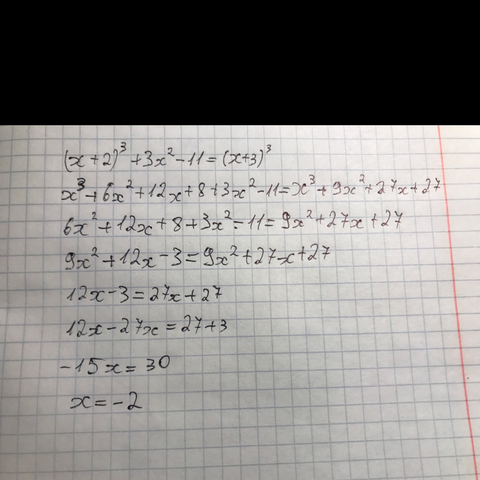 (x+2)³+3x²-11=(x+3)³
x³+6x²+12x+8+3x²-11=x³+9x²+27x+27
6x²+12x+8+3x²-11=9x²+27x+27
9x²+12x-3=9x²+27x+27
12x-3=27x+27
12x-27x=27+3
-15x=30
x=-2